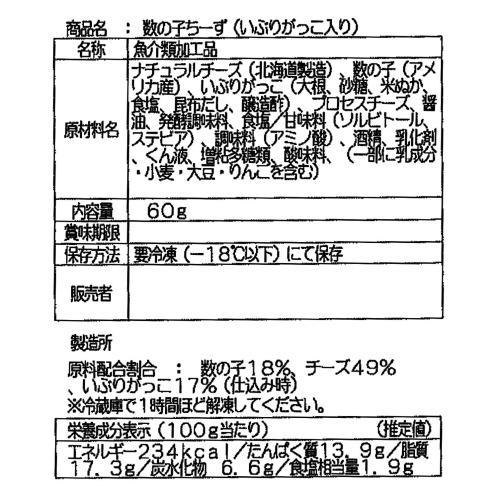 商品名　：　数の子ちーず（いぶりがっこ入り）
名称　魚介類加工品
原材料名　ナチュラルチーズ（北海道製造）、数の子（アメ
リカ産）、いぶりがっこ（大根、砂糖、米ぬか、
食塩、昆布だし、醸造酢）、プロセスチーズ、醤
油、発酵調味料、食塩／甘味料（ソルビトール、
ステビア）、調味料（アミノ酸）、酒精、乳化剤
、くん液、増粘多糖類、酸味料、（一部に乳成分
・小麦・大豆・りんごを含む）
内容量　６０ｇ
賞味期限
保存方法　要冷凍（－１８℃以下）にて保存
販売者
製造所
原料配合割合　：　数の子１８％、チーズ４９％
、いぶりがっこ１７％（仕込み時）
※冷蔵庫で１時間ほど解凍してください。
栄養成分表示（１００ｇ当たり）　（推定値）
エネルギー２３４ｋｃａｌ／たんぱく質１３．９ｇ／脂質
１７．３ｇ／炭水化物　６．６ｇ／食塩相当量１．９ｇ